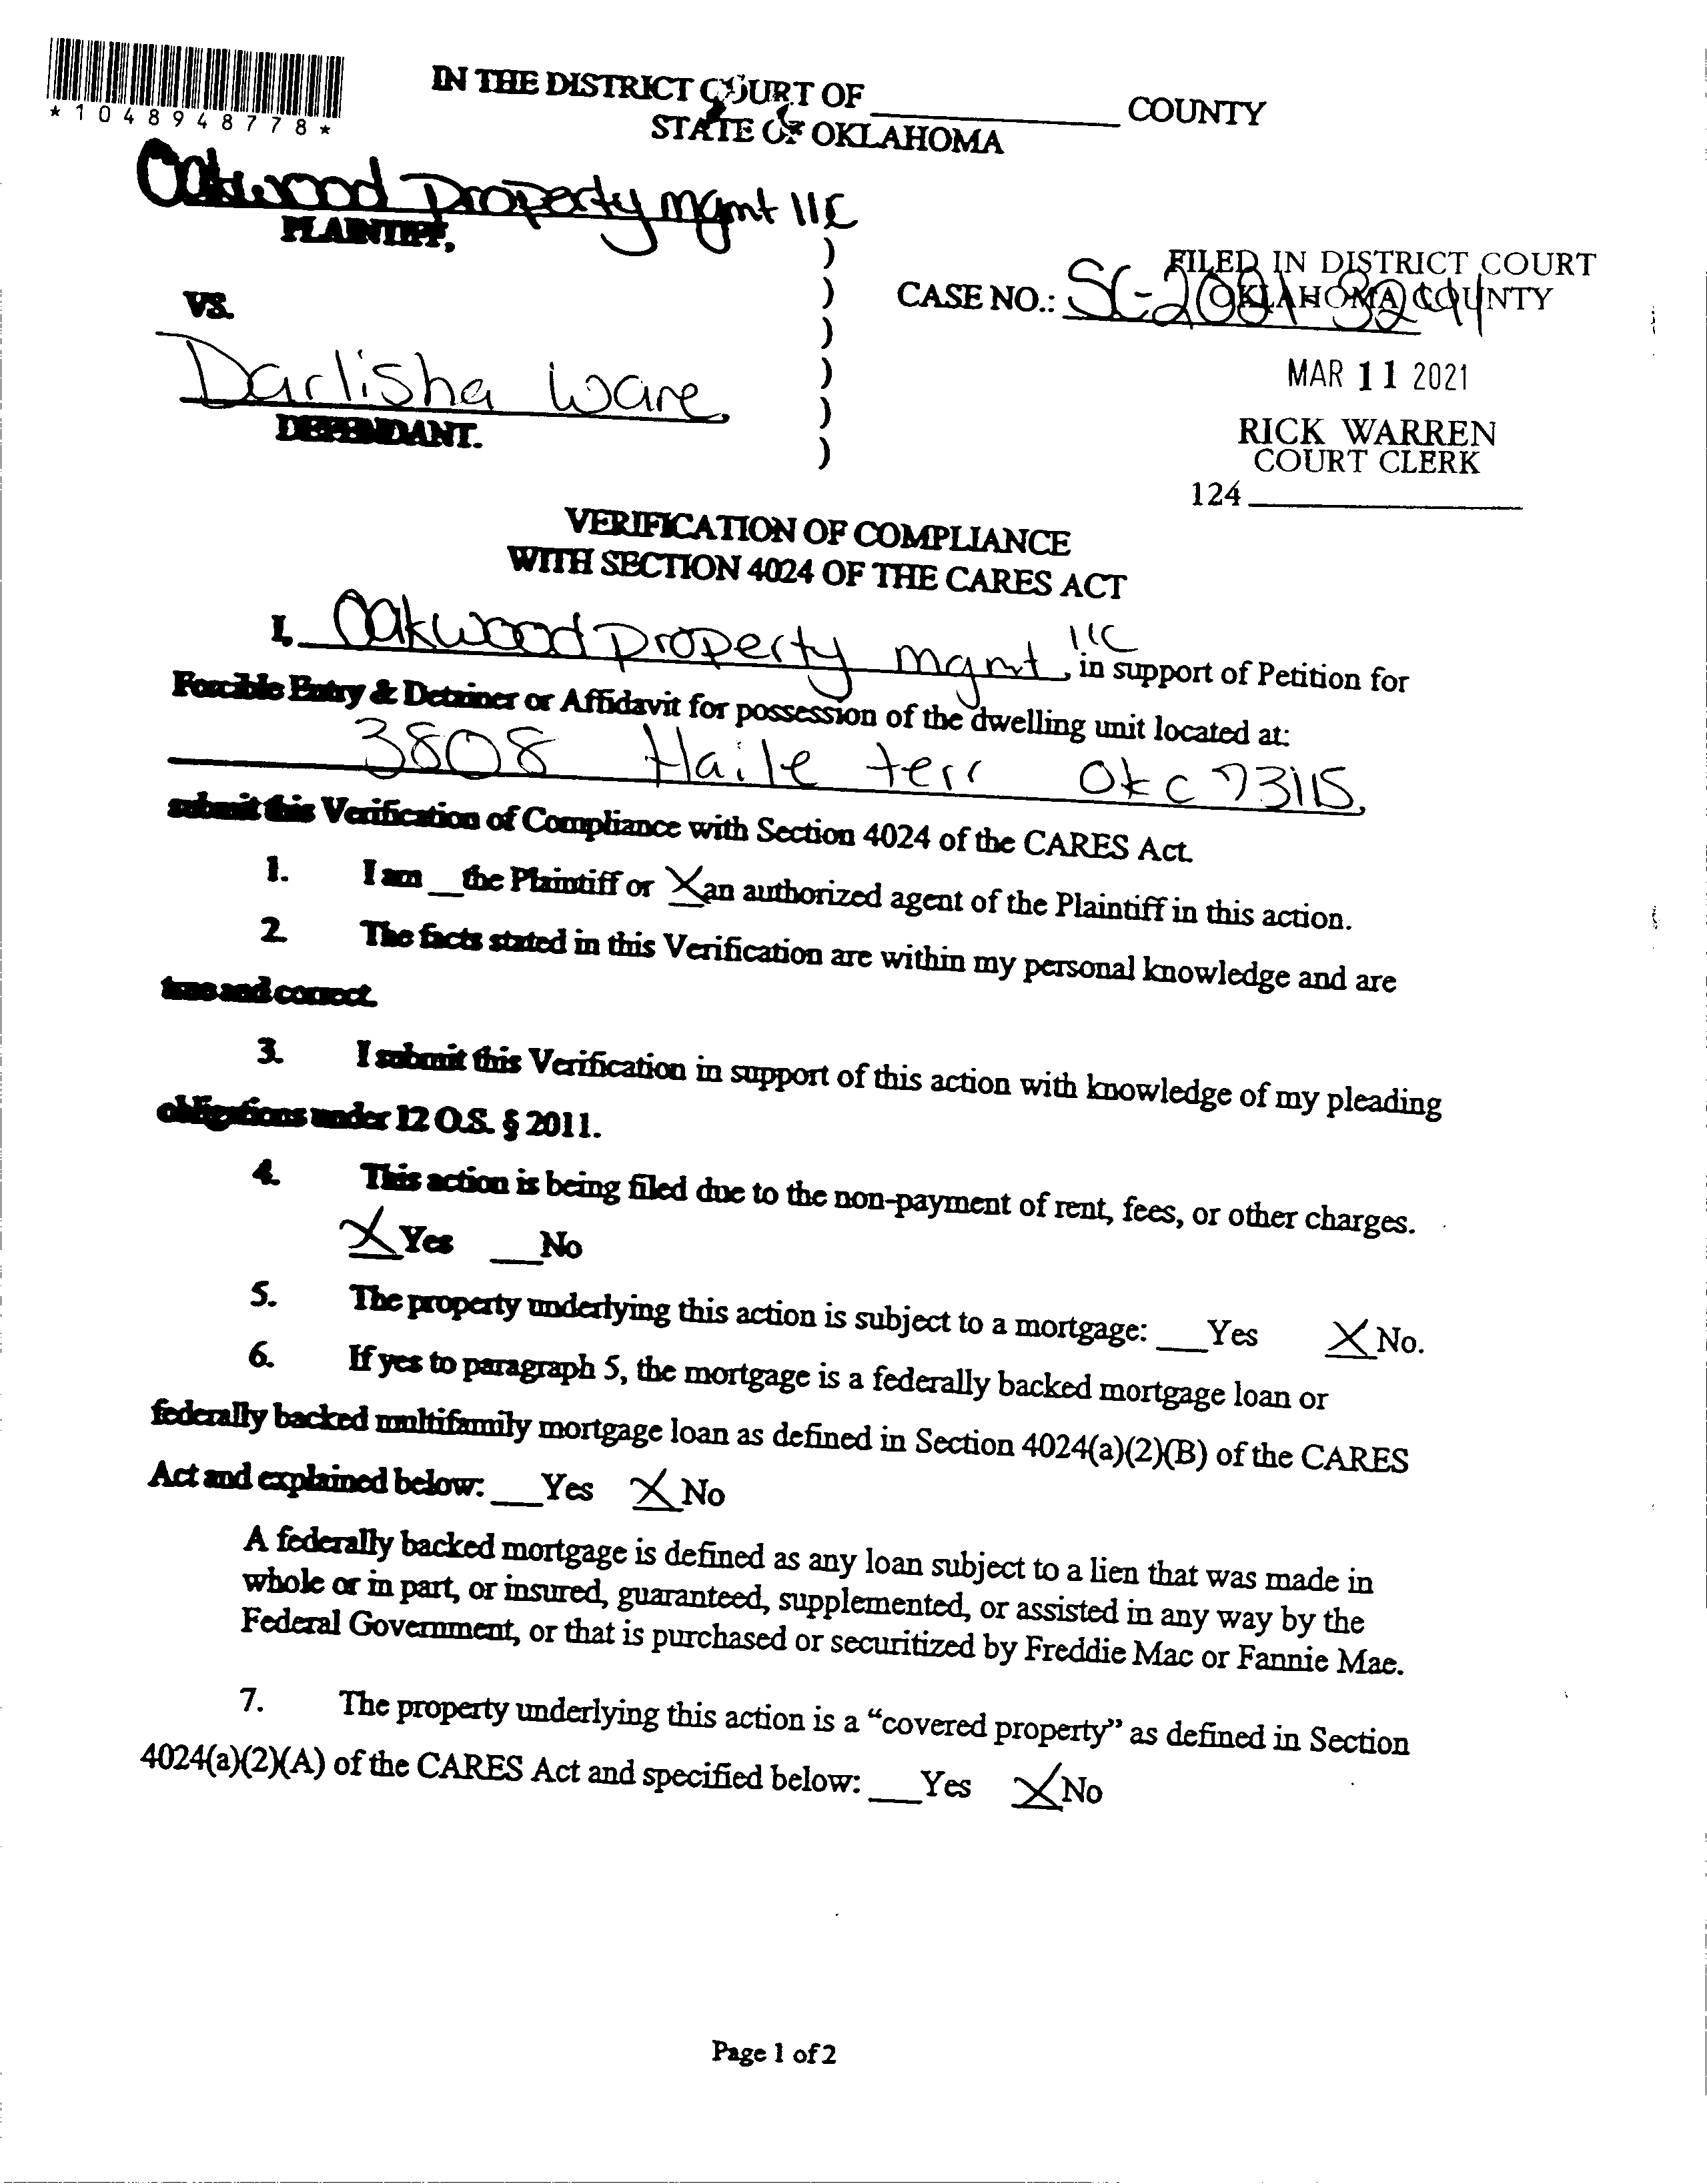 *1048948778*
IN THE DISTRICT COURT OF ____________ COUNTY
STATE OF OKLAHOMA
Oakwood Property mgmt llc
PLAINTIFF,
)
FILED IN DISTRICT COURT
OKLAHOMA COUNTY
)
CASE NO.:
VS.
)
Darlisha Ware
)
MAR 11 2021
)
DEFENDANT.
)
RICK WARREN
COURT CLERK
124 ____________
VERIFICATION OF COMPLIANCE
WITH SECTION 4024 OF THE CARES ACT
I, Oakwood property mgmt llc, in support of Petition for
Forcible Entry & Detainer or Affidavit for possession of the dwelling unit located at:
3808 Haile terr OKC 73115,
submit this Verification of Compliance with Section 4024 of the CARES Act.
1. I am __the Plaintiff or X an authorized agent of the Plaintiff in this action.
2. The facts stated in this Verification are within my personal knowledge and are
true and correct.
3. I submit this Verification in support of this action with knowledge of my pleading
obligations under 12 O.S. § 2011.
4. This action is being filed due to the non-payment of rent, fees, or other charges.
X Yes ___No
5. The property underlying this action is subject to a mortgage: ___Yes X No.
6. If yes to paragraph 5, the mortgage is a federally backed mortgage loan or
federally backed multifamily mortgage loan as defined in Section 4024(a)(2)(B) of the CARES
Act and explained below: ___Yes X No
A federally backed mortgage is defined as any loan subject to a lien that was made in
whole or in part, or insured, guaranteed, supplemented, or assisted in any way by the
Federal Government, or that is purchased or securitized by Freddie Mac or Fannie Mae.
7. The property underlying this action is a “covered property” as defined in Section
4024(a)(2)(A) of the CARES Act and specified below: ___Yes X No
Page 1 of 2